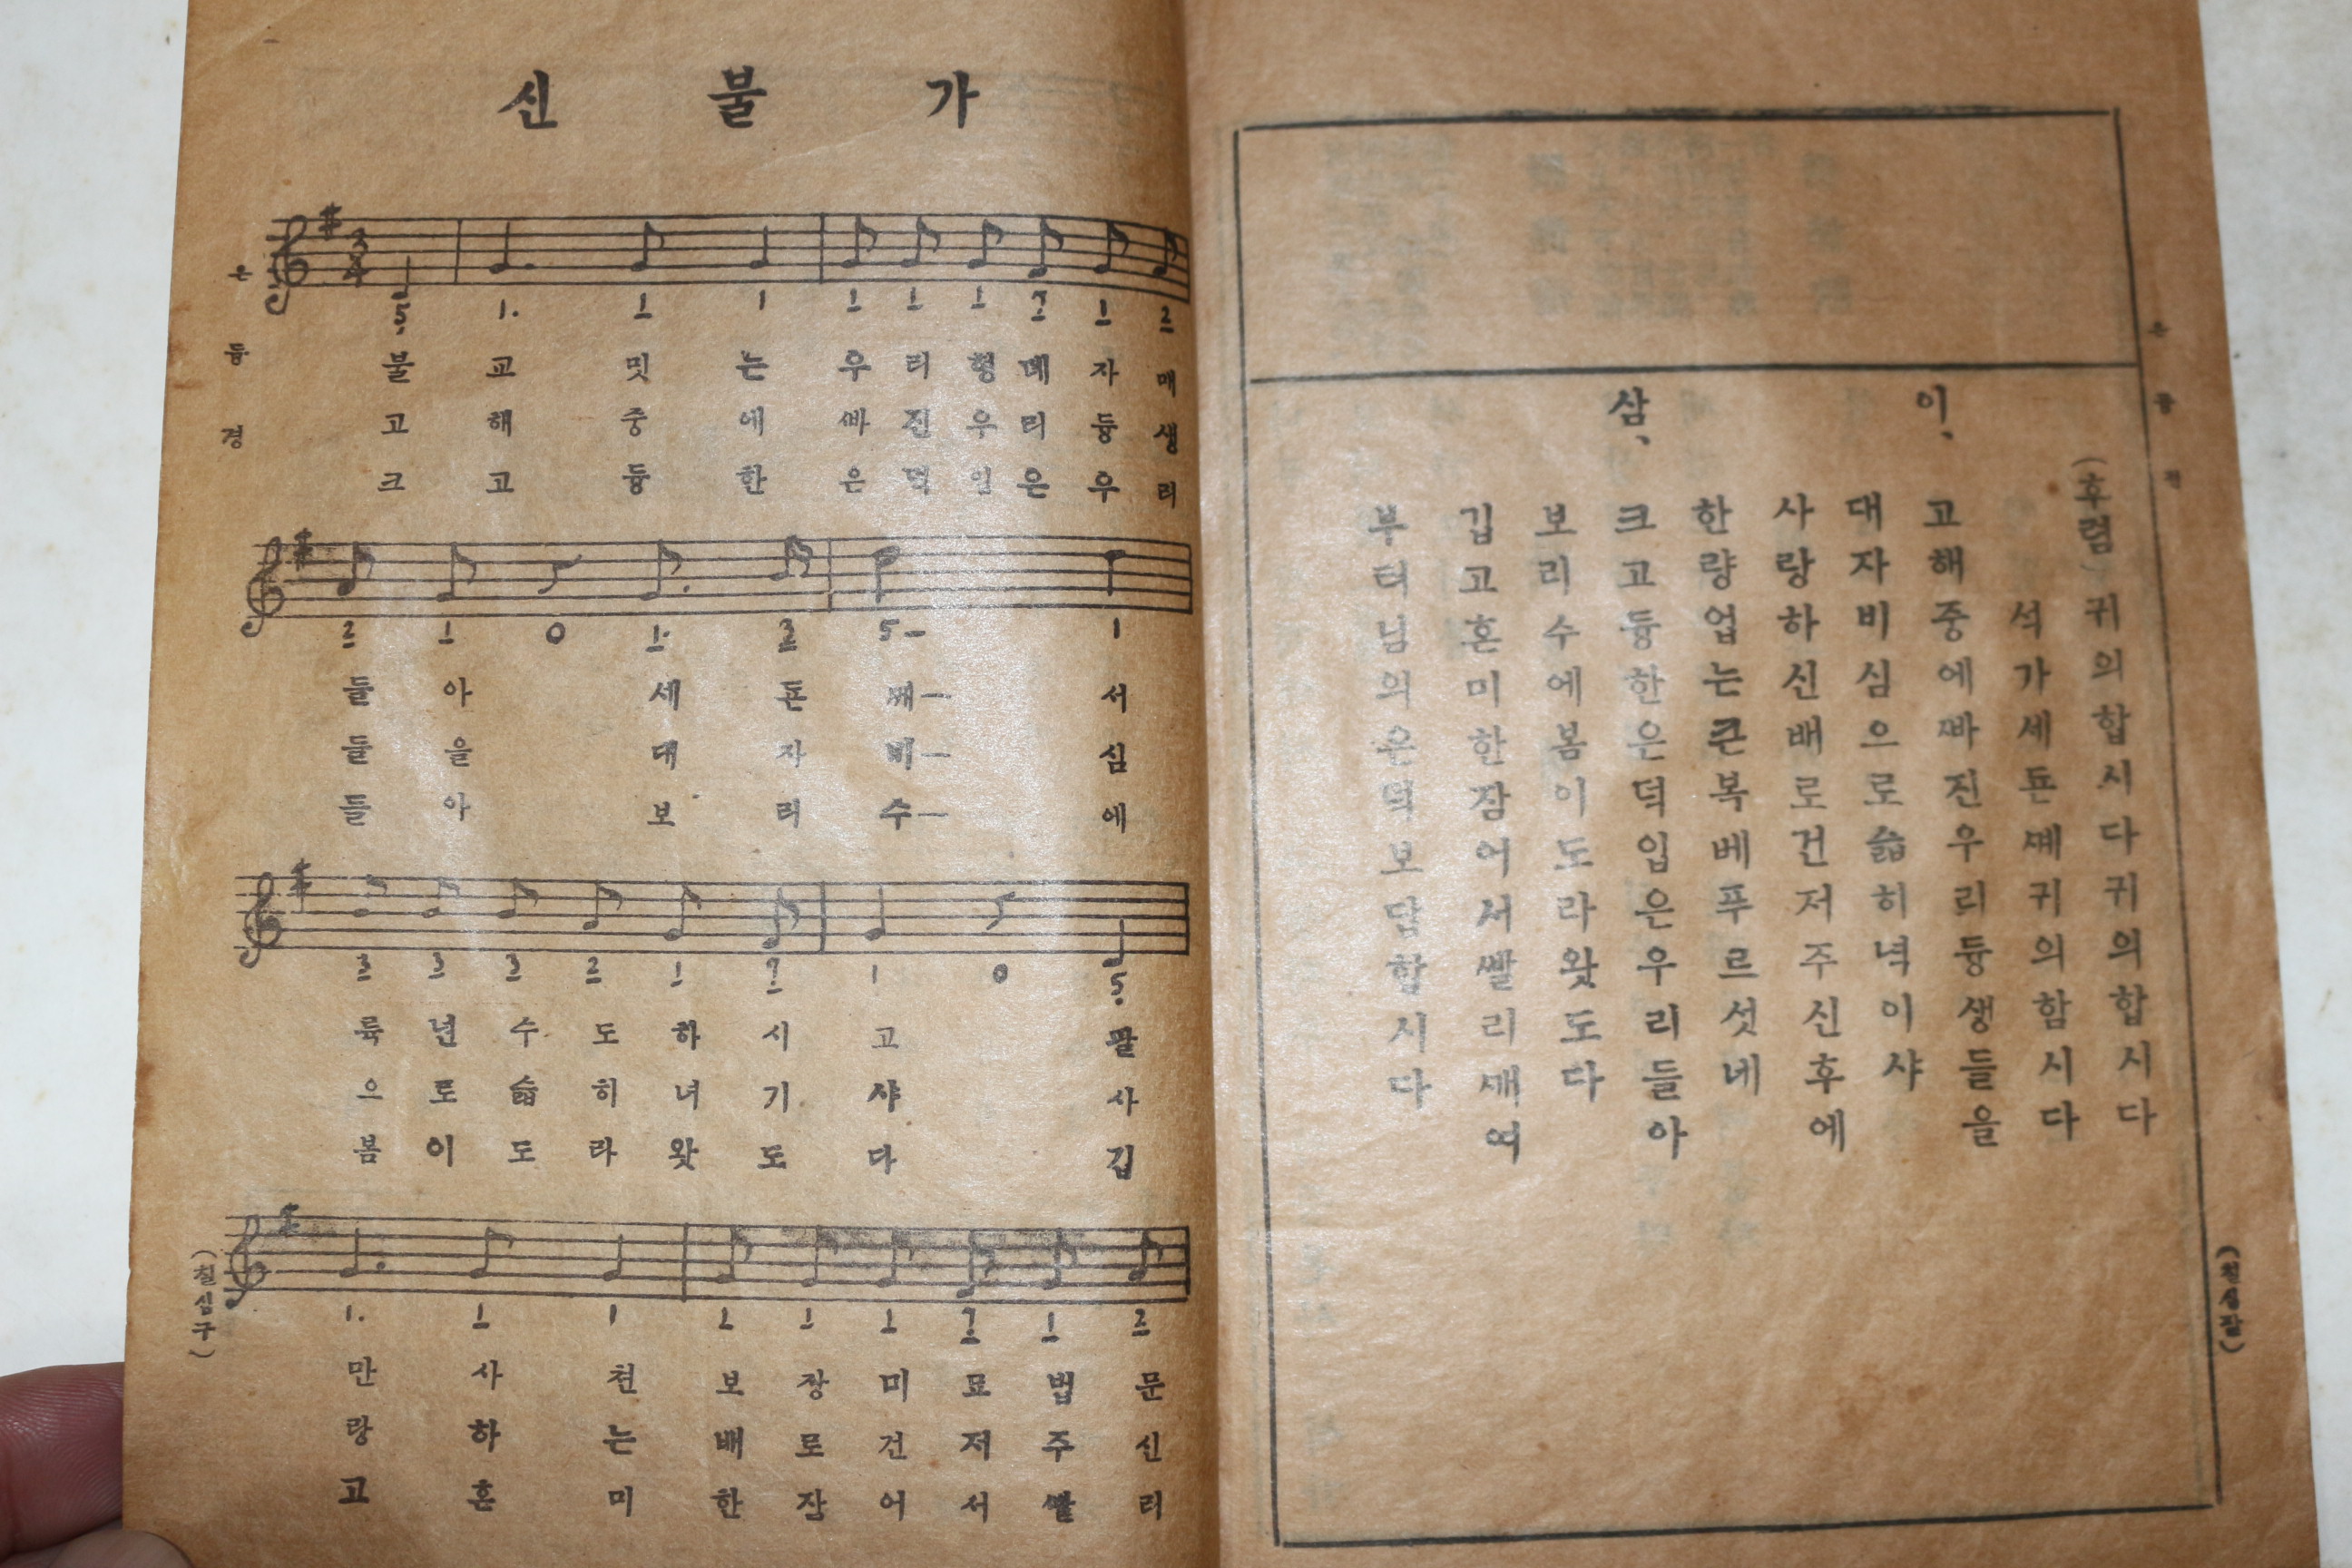 신 불 가
5 1. 1 1 1 1 1 7 1 2
불 교 밋 는 우 리 형 뎨 자 매
고 해 중 에 빠 진 우 리 듕 생
크 고 듕 한 은 덕 입 은 우 리
2 1 0 1. 3 5– 1
들 아 세 돈 께– 서
들 을 대 자 비– 심
들 아 보 리 수– 에
3 3 3 2 1 7 1 0 5
륙 년 수 도 하 시 고 팔
으 로 슯 히 녀 기 샤 사
봄 이 도 라 왓 도 다 깁
1. 1 1 1 1 1 7 1 2
만 사 쳔 보 장 미 묘 법 문
랑 하 는 배 로 건 저 주 신
고 혼 미 한 잠 어 서 빨 리
은듕경
(칠십구)
(후렴) 귀의합시다귀의합시다
석가세돈께귀의함시다
이、 고해중에빠진우리듕생들을
대자비심으로슯히녁이샤
사랑하신배로건저주신후에
한량업는큰복베푸르섯네
삼、 크고듕한은덕입은우리들아
보리수에봄이도라왓도다
깁고혼미한잠어서빨리깨여
부터님의은덕보답합시다
은듕경
(칠십팔)